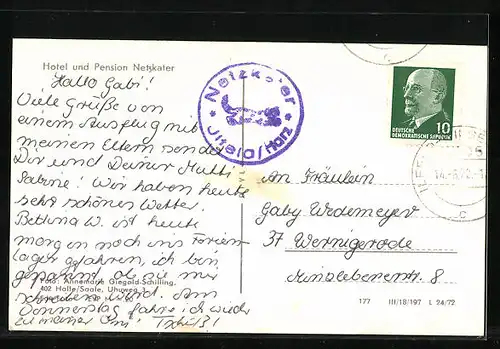 Hotel und Pension Netzkater
Hallo Gabi!
Viele Grüße von
einem Ausflug mit
meinen Eltern sendet
Dir und Deiner Mutti
Sabine! Wir haben heute
sehr schönes Wetter.
Bettina W. ist heute
morgen noch ins Ferien-
lager gefahren, ich bin
gespannt, ob sie mir
schreiben wird. Am
Donnerstag fahre ich wieder
zu meiner Omi! Tschüß!
Foto: Annemarie Giegold-Schilling,
402 Halle/Saale, Uhuweg
Netzkater
Ilfeld/Harz
10
DEUTSCHE
DEMOKRATISCHE REPUBLIK
An Fräulein
Gaby Wedemeyer
37 Wernigerode
Minslebenerstr. 8
177 III/18/197 L 24/72